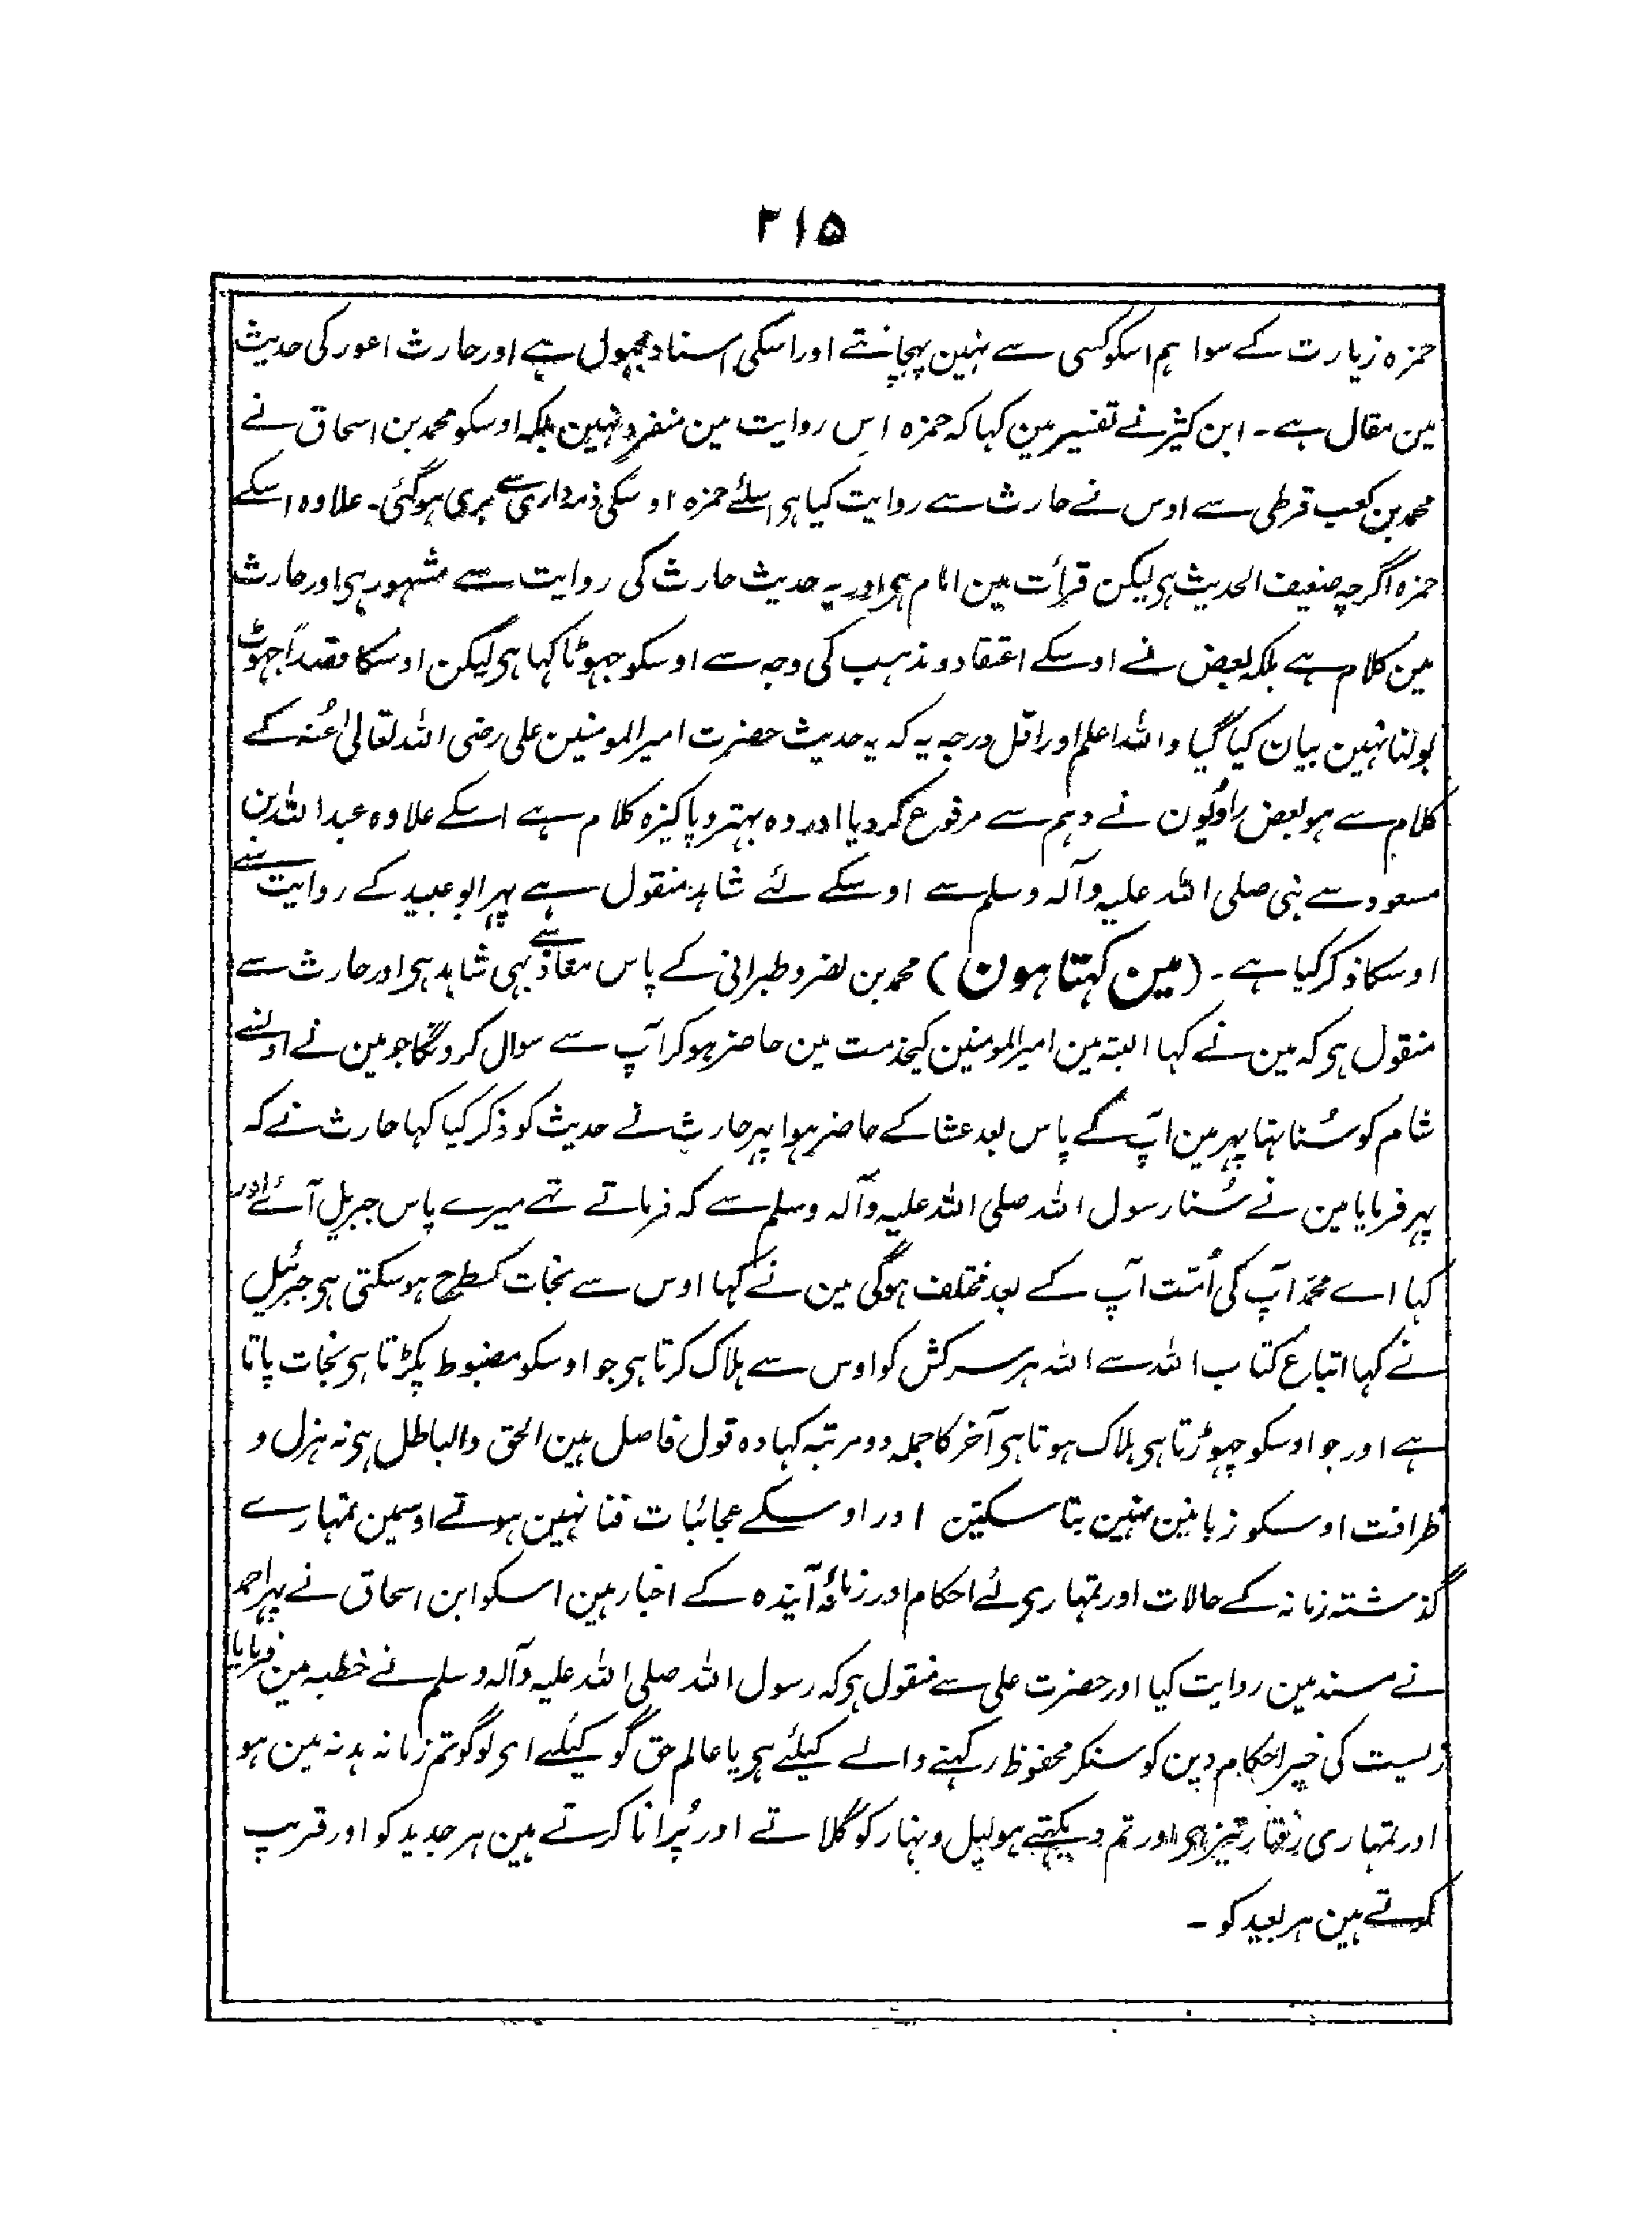 ۲۱۵
حمزہ زیارت کے سوا ہم اسکو کسی سے نہین پہچانتے اور اسکی اسناد مجہول ہے اور حارث اعور کی حدیث
مین مقال ہے۔ ابن کثیر نے تفسیر مین کہا کہ حمزہ اس روایت مین منفرد نہین بلکہ اوسکو محمد بن اسحاق نے
محمد بن کعب قرطی سے اوس نے حارث سے روایت کیا ہی اسلئے حمزہ اوسکی ذمہ داری سے بری ہوگئی۔ علاوہ اسکے
حمزہ اگرچہ ضعیف الحدیث ہی لیکن قرأت مین امام ہی اور یہ حدیث حارث کی روایت سے مشہور ہی اور حارث
مین کلام ہے بلکہ بعض نے اوسکے اعتقاد و مذہب کی وجہ سے اوسکو جہوٹا کہا ہی لیکن اوسکا قصداً جہوٹ
بولنا نہین بیان کیا گیا واللہ اعلم اور اقل درجہ یہ کہ یہ حدیث حضرت امیر المومنین علی رضی اللہ تعالیٰ عنہ کے
کلام سے ہو بعض راویون نے وہم سے مرفوع کردیا اور وہ بہتر و پاکیزہ کلام ہے اسکے علاوہ عبد اللہ بن
مسعود سے نبی صلی اللہ علیہ وآلہ وسلم سے اوسکے لئے شاہد منقول ہے پہر ابو عبید کے روایت سے
اوسکا ذکر کیا ہے۔ (مین کہتا ہون) محمد بن نصر و طبرانی کے پاس معاذ سے بہی شاہد ہی اور حارث سے
منقول ہی کہ مین نے کہا البتہ مین امیر المومنین کیخدمت مین حاضر ہوکر آپ سے سوال کرونگا جو مین نے اونسے
شام کو سُنا تہا پہر مین آپ کے پاس بعد عشا کے حاضر ہوا پہر حارث نے حدیث کو ذکر کیا کہا حارث نے کہ
پہر فرمایا مین نے سُنا رسول اللہ صلی اللہ علیہ وآلہ وسلم سے کہ فرماتے تہے میرے پاس جبریل آئے اور
کہا اے محمد آپ کی اُمت آپ کے بعد مختلف ہوگی مین نے کہا اوس سے نجات کسطرح ہوسکتی ہی جبرئیل
نے کہا اتباع کتاب اللہ سے اللہ ہر سرکش کو اوس سے ہلاک کرتا ہی جو اوسکو مضبوط پکڑتا ہی نجات پاتا
ہے اور جو اوسکو چہوڑتا ہی ہلاک ہوتا ہی آخر کا جملہ دو مرتبہ کہا وہ قول فاصل بین الحق والباطل ہی نہ ہزل و
ظرافت اوسکو زبانین نہین بتا سکتین اور اوسکے عجائبات فنا نہین ہوتے اوسمین تمہارے
گذشتہ زمانہ کے حالات اور تمہاری لئے احکام اور زمانۂ آیندہ کے اخبار ہین اسکو ابن اسحاق نے پہر احمد
نے مسند مین روایت کیا اور حضرت علی سے منقول ہی کہ رسول اللہ صلی اللہ علیہ وآلہ وسلم نے خطبہ مین فرمایا
زیست کی خیر احکام دین کو سنکر محفوظ رکہنے والے کیلئے ہی یا عالم حق گو کیلئے ای لوگو تم زمانہ ہدنہ مین ہو
اور تمہاری رفتار تیز ہی اور تم دیکہتے ہو لیل و نہار کو گلاتے اور پُرانا کرتے ہین ہر جدید کو اور قریب
کرتے ہین ہر بعید کو۔